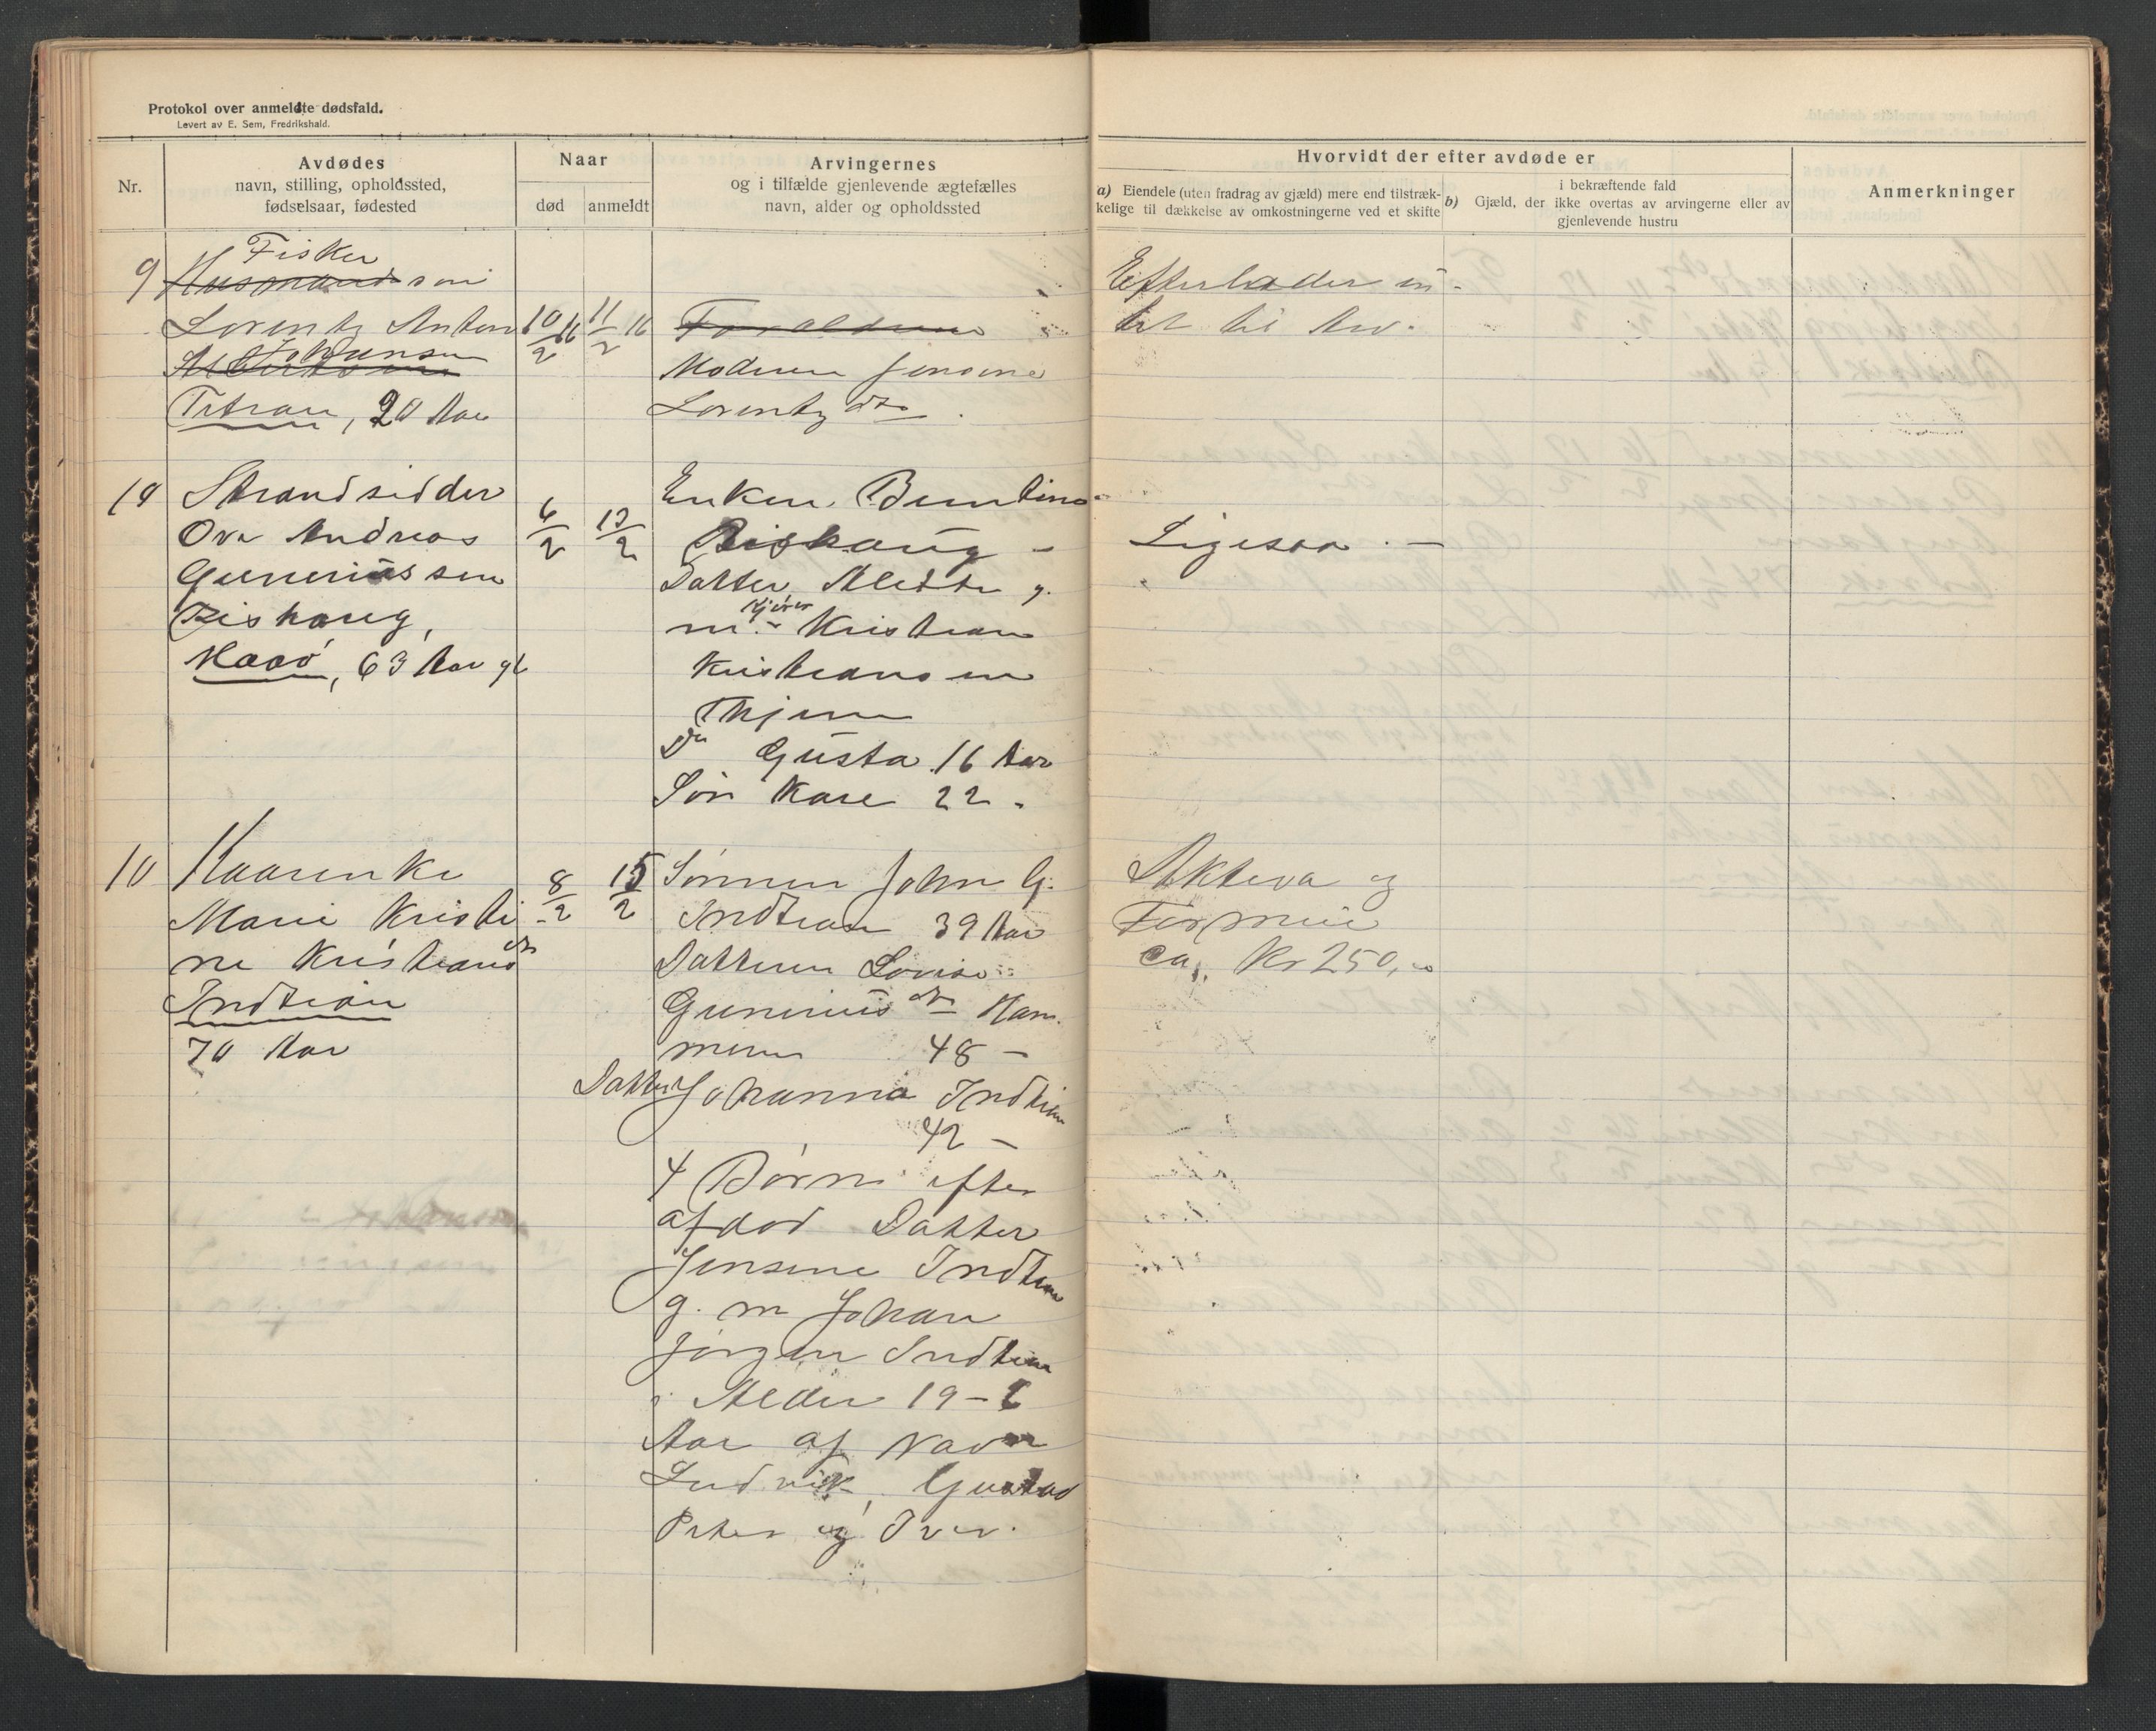 Protokol over anmeldte dødsfald.
Levert av E. Sem, Fredrikshald.
Nr.
Avdødes
navn, stilling, opholdssted,
fødselsaar, fødested
Naar
død
anmeldt
Arvingernes
og i tilfælde gjenlevende ægtefælles
navn, alder og opholdssted
Hvorvidt der efter avdøde er
a) Eiendele (uten fradrag av gjæld) mere end tilstræk-
kelige til dækkelse av omkostningerne ved et skifte
i bekræftende fald
b) Gjæld, der ikke overtas av arvingerne eller av
gjenlevende hustru
Anmerkninger
Fisker
9 Husmandssøn
Lorentz Anton
Johansen
Titran, 20 Aar
10/2 16
11/2 16
Forældrene
Moderen
Lorentzdtr.
Efterlader in-
tet til Arv.
Strandsidder
Ove Andreas
Guneriussen
Rishaug,
63 Aar gl
6/2
12/2
Enken
Rishaug -
Datter Aletta g.
m. Kristian
Kristiansen
D Gusta 16 Aar
Søn Kare 22 "
Ligesaa. -
10 Kaarenke
Marie Kristi
ne Kristiansdtr
Indtian
70 Aar
8/2
15/2
Sønnen John G.
Indtian 39 Aar
Datteren Lovise
Guneriusdtr Ham.
48 -
Datter Johanna Indtian
42 -
4 Børn efter
afdød Datter
Jensine Indtian
g. m Johan
Jørgen Indtian
i Alder 19 - 6
Aar af Navn
Ludvik, Gustav
Peter og Iver.
Aktiva og
Formue
ca. Kr 250,00